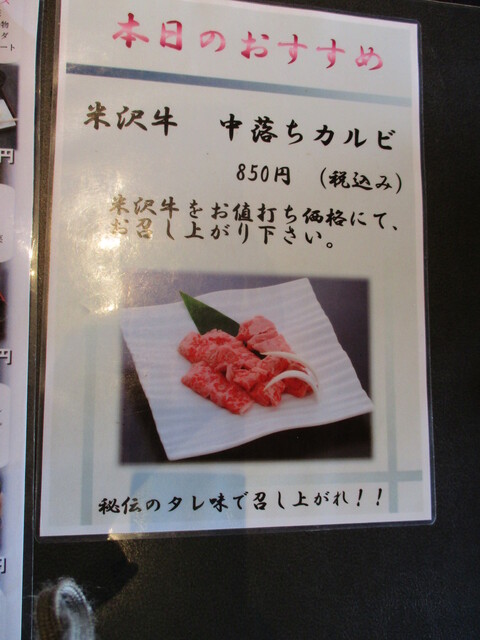 本日のおすすめ
米沢牛 中落ちカルビ
850円 (税込み)
米沢牛をお値打ち価格にて、
お召し上がり下さい。
秘伝のタレ味で召し上がれ！！
物
ダ
ート
円
円
円